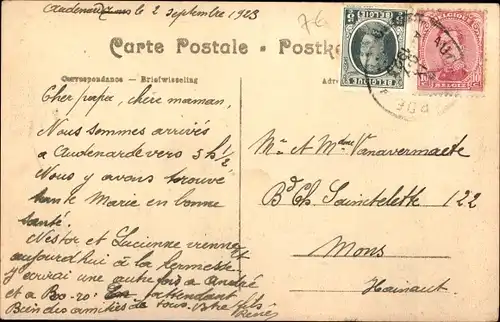 Audenarde le 2 septembre 1923
76
Carte Postale - Postk
Correspondance - Briefwisseling
Adre
BELGIE
BELGIQUE
BELGIQUE
BELGIE
Cher papa, chère maman,
Nous sommes arrivés
à Audenarde vers 3 h 1/2
Nous y avons trouvé
tante Marie en bonne
santé.
Nestor et Lucienne viennent
aujourd'hui à la kermesse
J'écrirai une autre fois à André
et à Bo-ro. En attendant
Bien des amitiés de tous. Votre fils
René
Mr et Mdme Vanavermaete
Bd Ch. Sainctelette 122
Mons
Hainaut